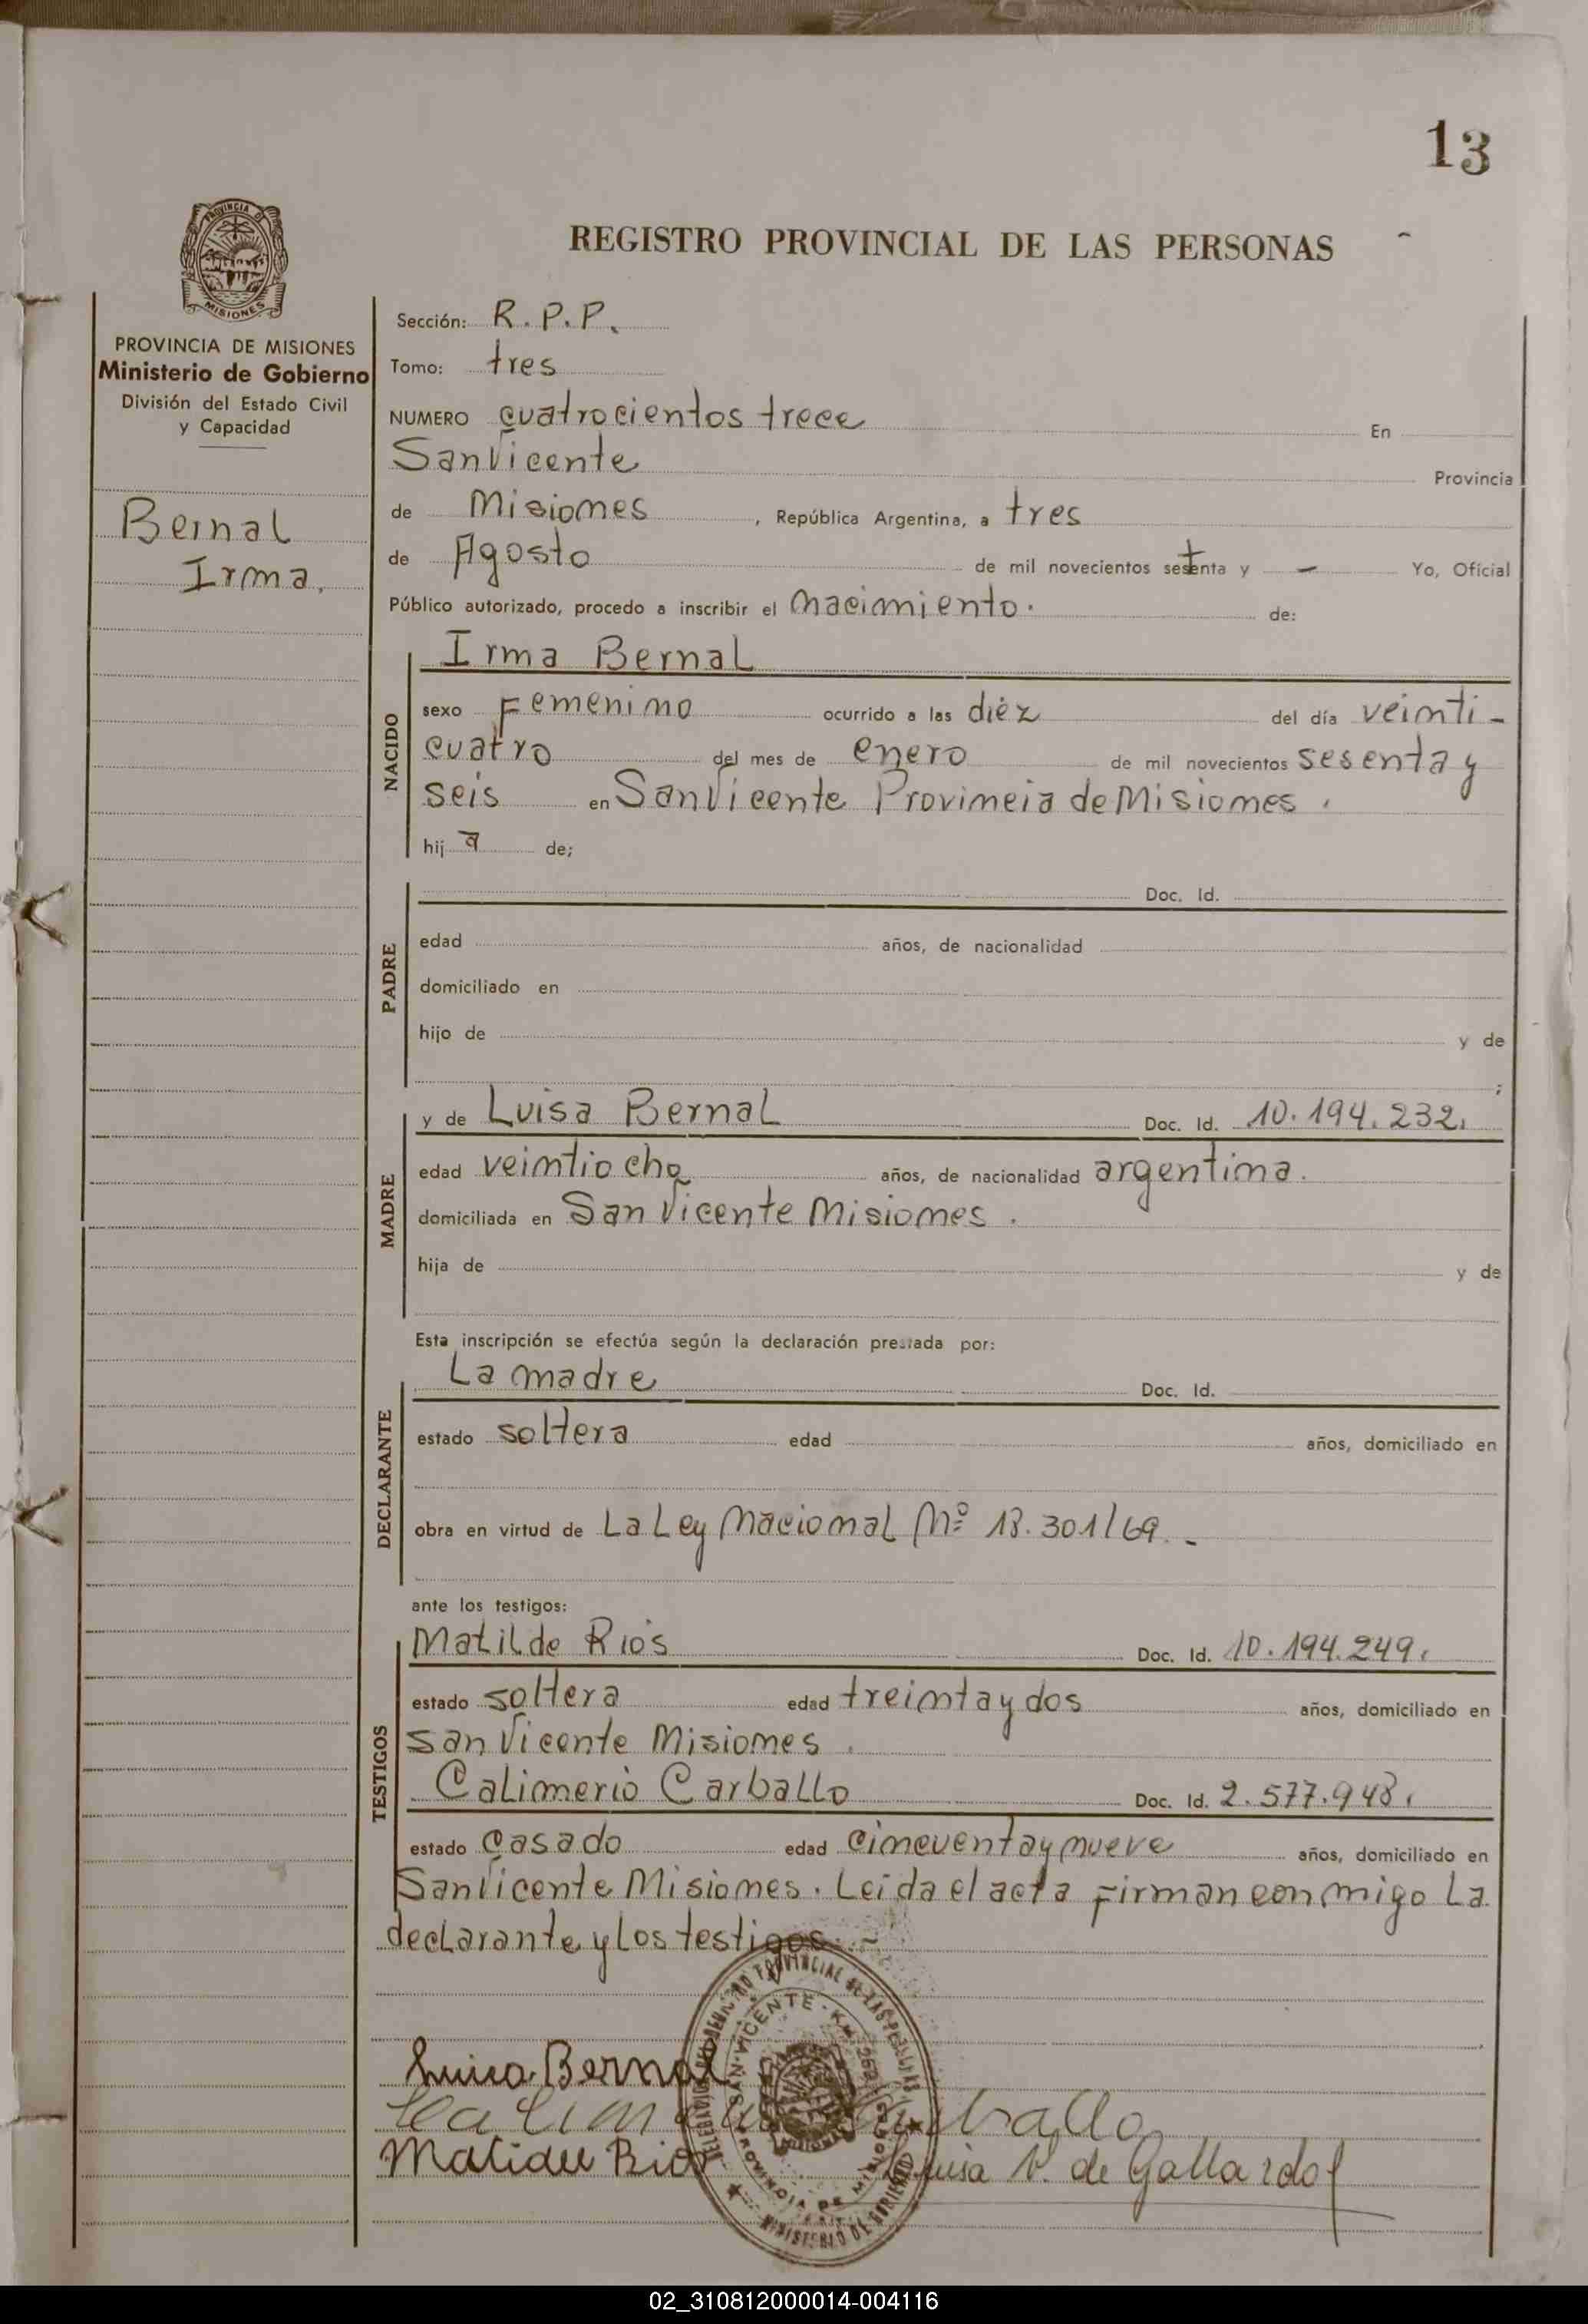 13
PROVINCIA DE MISIONES
Ministerio de Gobierno
División del Estado Civil
y Capacidad
Bernal
Irma,
REGISTRO PROVINCIAL DE LAS PERSONAS
Sección: R.P.P.
Tomo: tres
NUMERO cuatrocientos trece En
San Vicente Provincia
de Misiones, República Argentina, a tres
de Agosto de mil novecientos setenta y - Yo, Oficial
Público autorizado, procedo a inscribir el nacimiento. de:
NACIDO
Irma Bernal
sexo Femenino ocurrido a las diez del día veinti-
cuatro del mes de enero de mil novecientos sesenta y
seis en San Vicente Provincia de Misiones.
hij a de;
PADRE
Doc. Id.
edad años, de nacionalidad
domiciliado en
hijo de y de
;
MADRE
y de Luisa Bernal Doc. Id. 10.194.232.
edad veintiocho años, de nacionalidad argentina.
domiciliada en San Vicente Misiones.
hija de y de
Esta inscripción se efectúa según la declaración prestada por:
DECLARANTE
La madre Doc. Id.
estado soltera edad años, domiciliado en
obra en virtud de La Ley Nacional Nº 18.301/69.-
ante los testigos:
TESTIGOS
Matilde Rios Doc. Id. 10.194.249.
estado soltera edad treinta y dos años, domiciliado en
San Vicente Misiones.
Calimerio Carballo Doc. Id. 2.577.948.
estado casado edad cincuenta y nueve años, domiciliado en
San Vicente Misiones. Leida el acta firman conmigo La
declarante y Los testigos.-
Luisa Bernal
Carballo
Rios
Luisa V. de Gallardo
SAN VICENTE
PROVINCIA DE MISIONES
MINISTERIO DE GOBIERNO
02_310812000014-004116